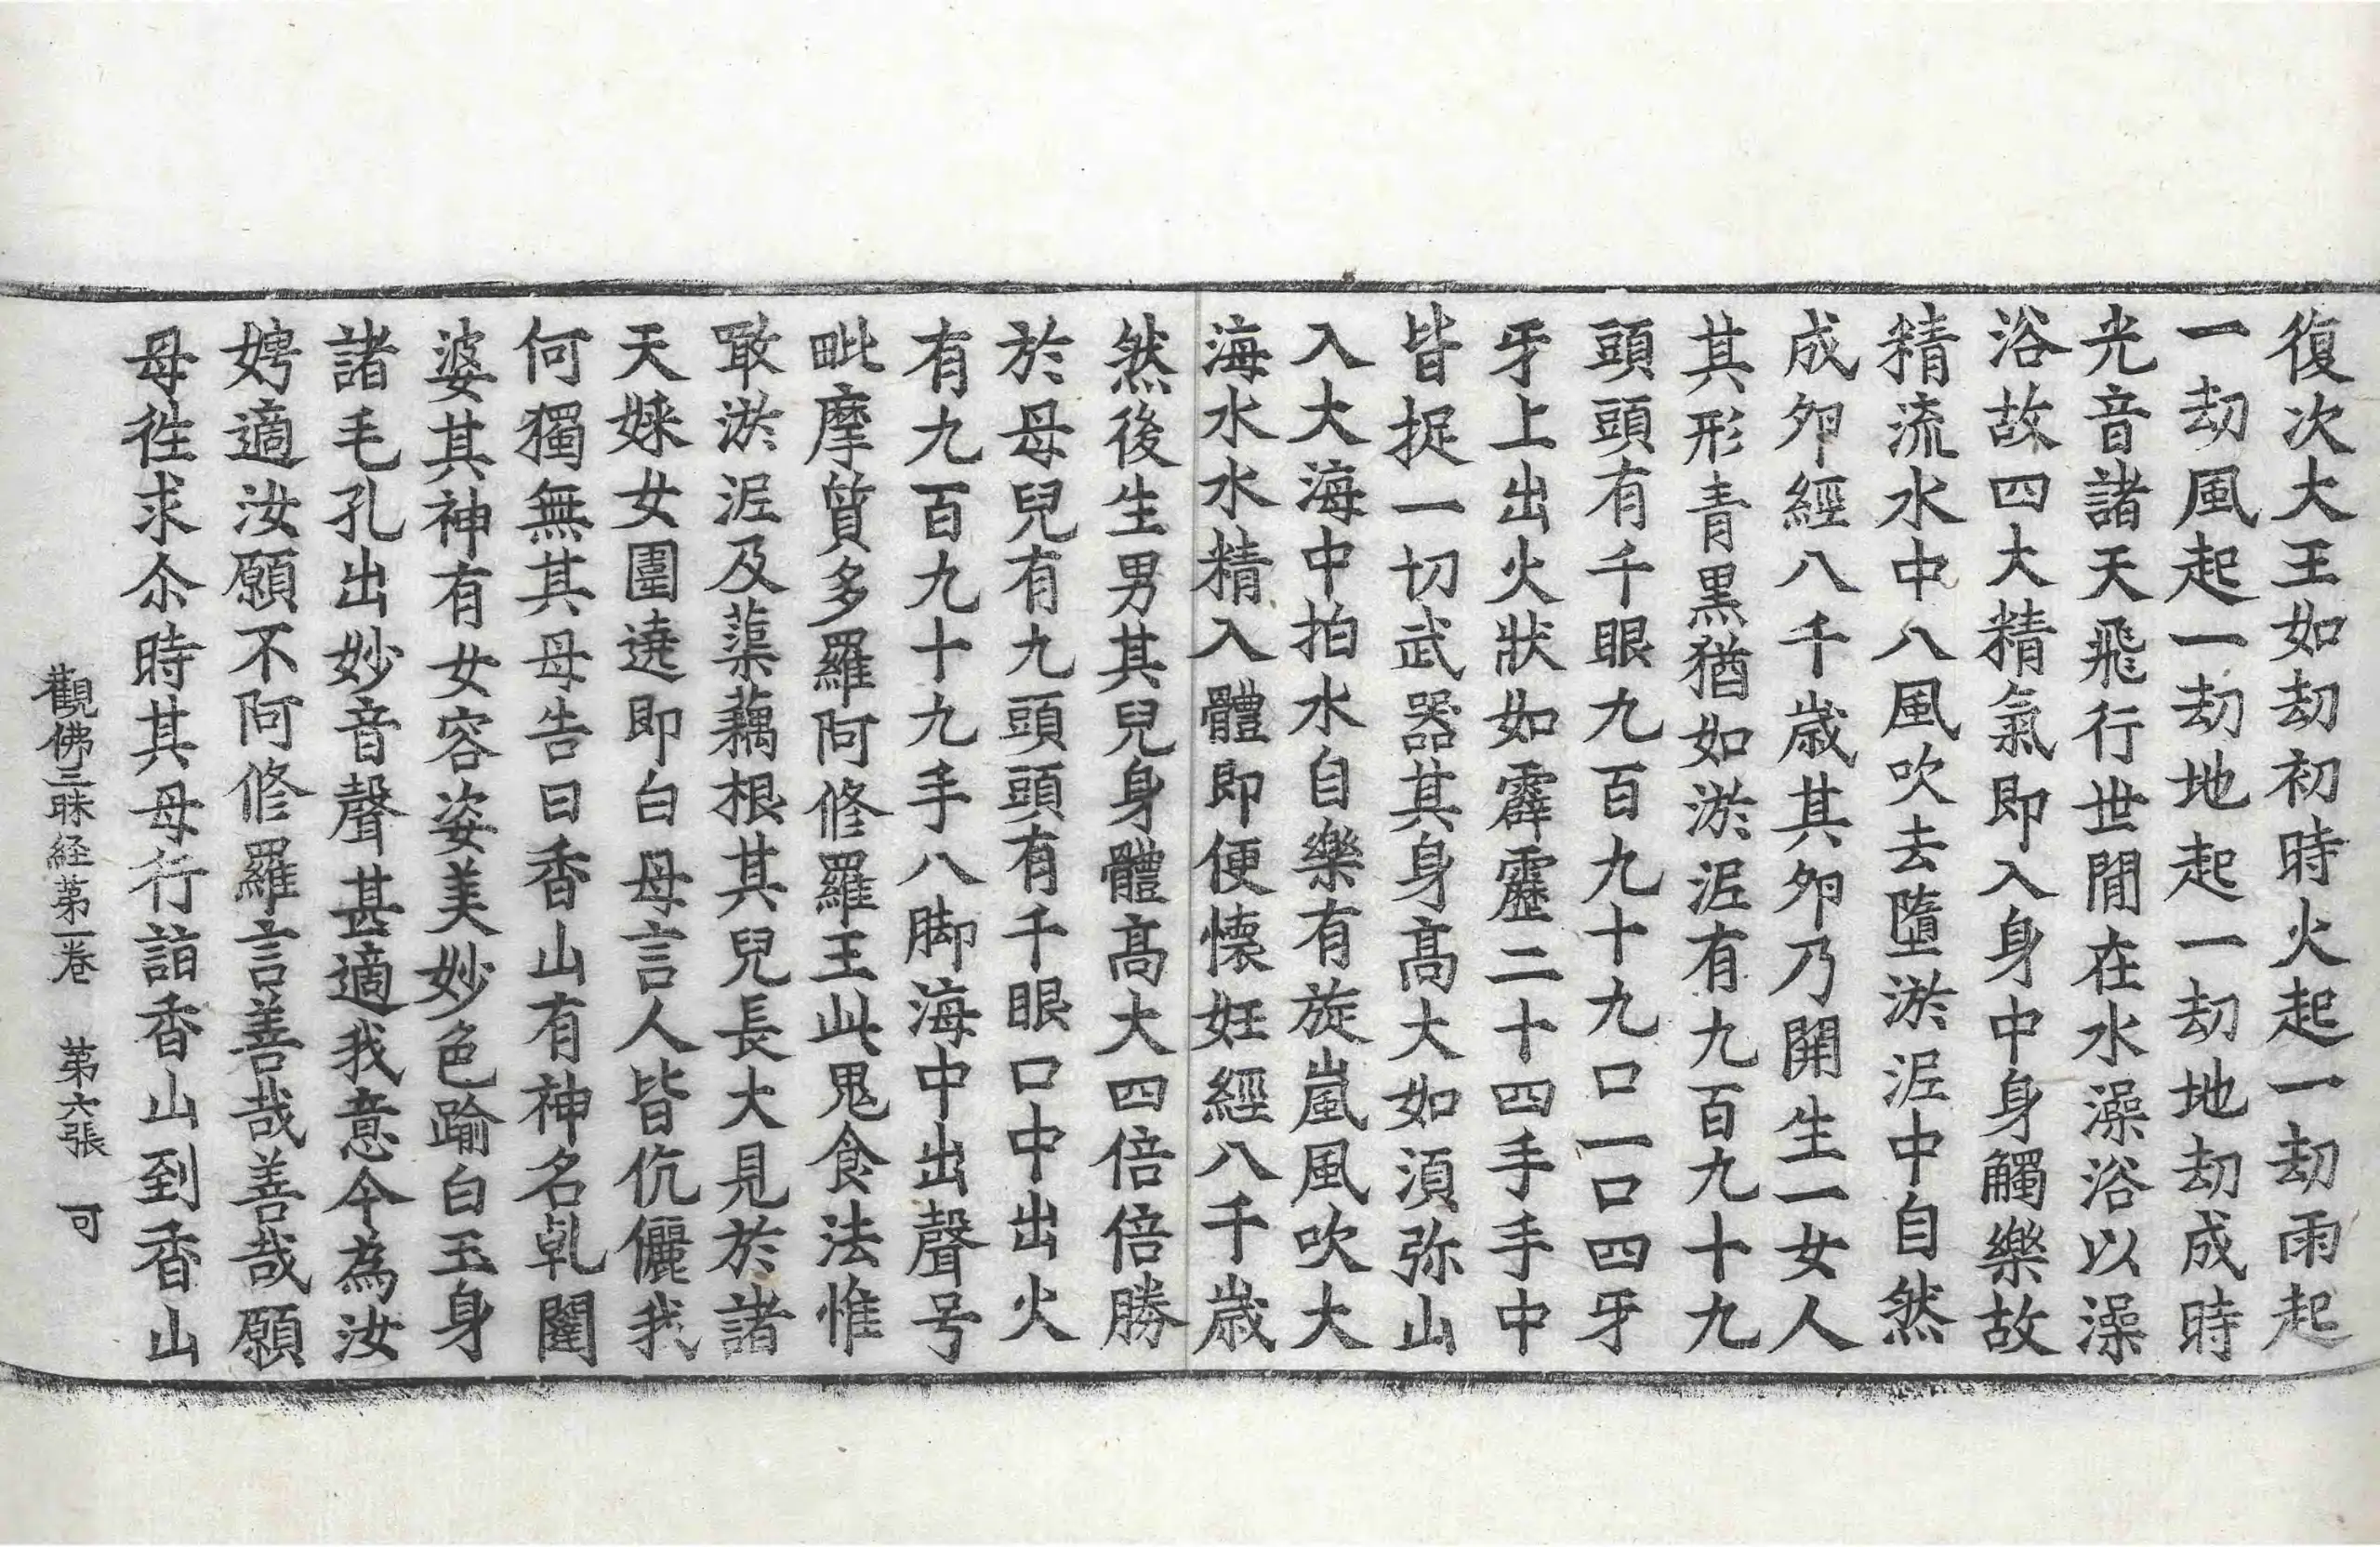 復次大王如劫初時火起一劫雨起
一劫風起一劫地起一劫地劫成時
光音諸天飛行世閒在水澡浴以澡
浴故四大精氣即入身中身觸樂故
精流水中八風吹去墮淤泥中自然
成夘經八千歲其夘乃開生一女人
其形青黑猶如淤泥有九百九十九
頭頭有千眼九百九十九口一口四牙
牙上出火狀如霹靂二十四手手中
皆捉一切武器其身高大如湏弥山
入大海中拍水自樂有旋嵐風吹大
海水水精入體即便懐妊經八千歲
然後生男其兒身體高大四倍倍勝
於母兒有九頭頭有千眼口中出火
有九百九十九手八脚海中出聲号
毗摩質多羅阿修羅王此鬼食法惟
噉淤泥及蕖藕根其兒長大見於諸
天婇女圍遶即白母言人皆伉儷我
何獨無其母告曰香山有神名乹闥
婆其神有女容姿美妙色踰白玉身
諸毛孔出妙音聲甚適我意今為汝
娉適汝願不阿修羅言善哉善哉願
母徃求尒時其母行詣香山到香山
觀佛三昧経苐一卷　苐六張　可